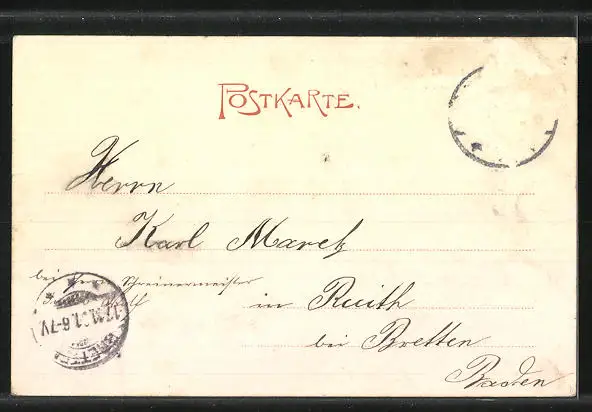 POSTKARTE.
Herrn
Karl Marck
bei Schreinermeister
in Ruith
bei Bretten
Baden
BRETTEN